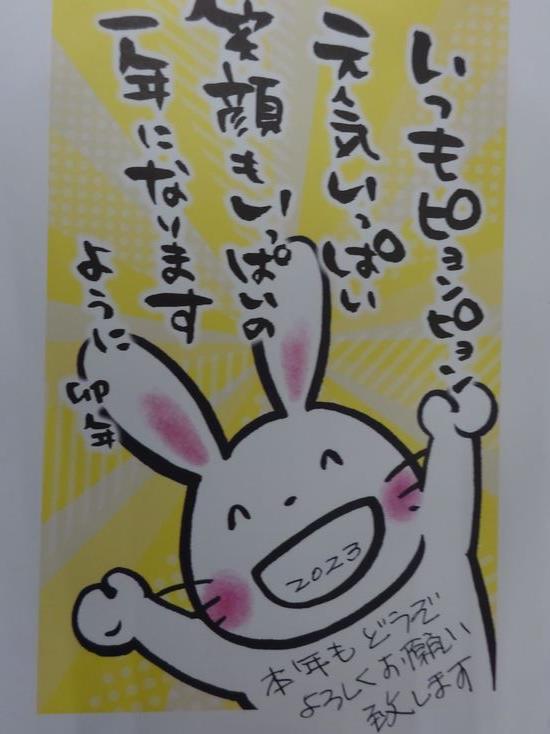 いつもピョンピョン
元気いっぱい
笑顔もいっぱいの
一年になります
ように
卯年
2023
本年もどうぞ
よろしくお願い
致します